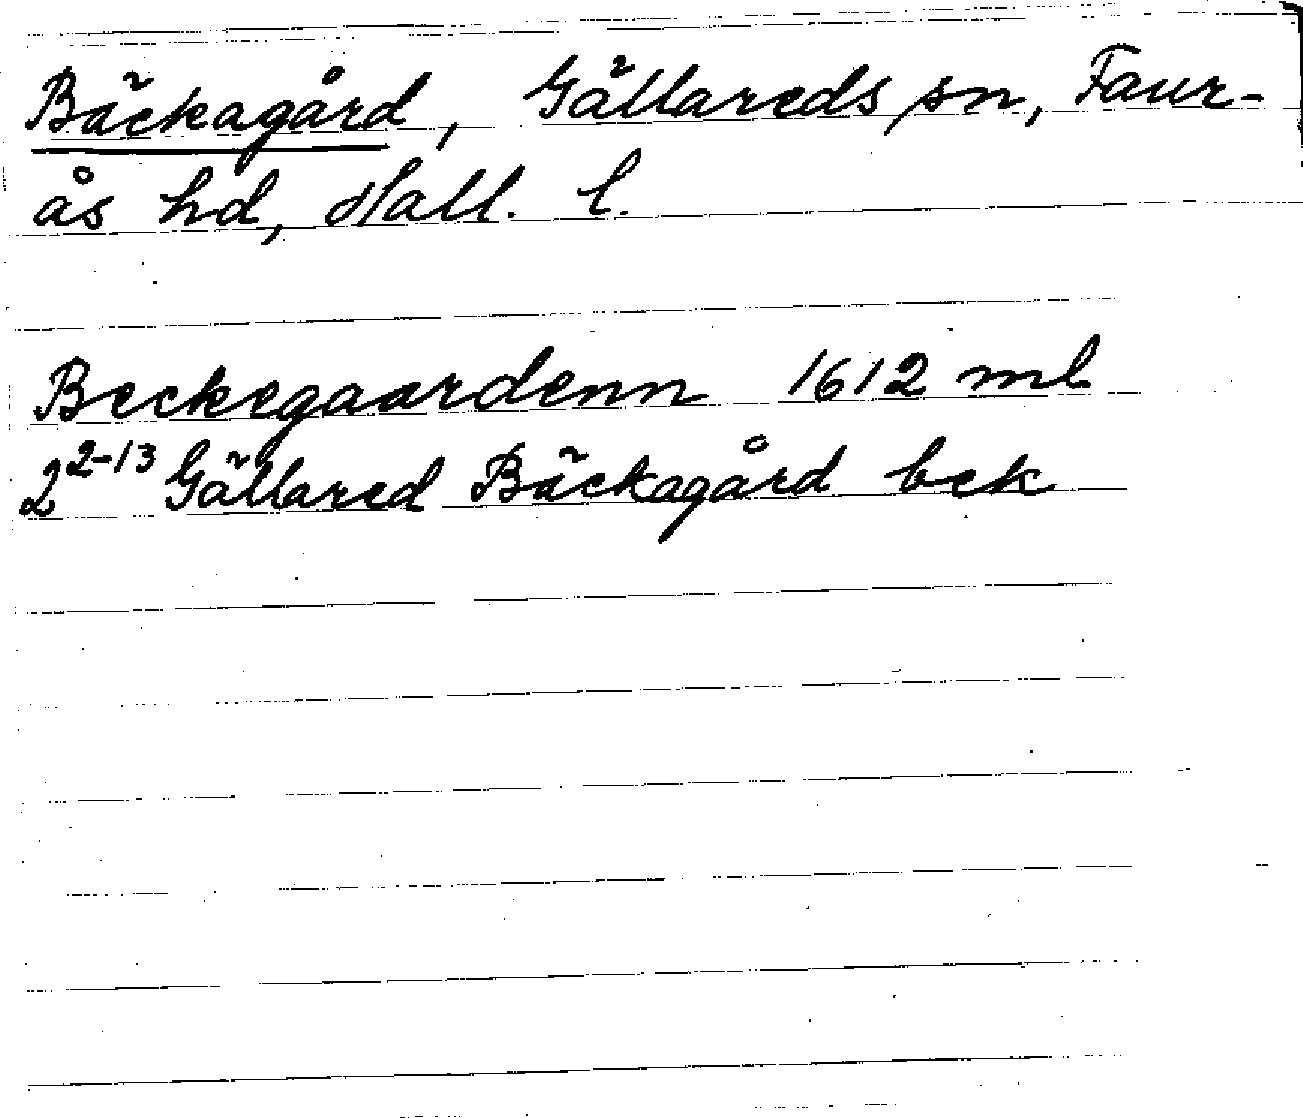 Bäckagård, Gällareds sn, Faur-
ås hd, Hall. l.
Beckegaardenn 1612 ml
2 2-13 Gällared Bäckagård bek